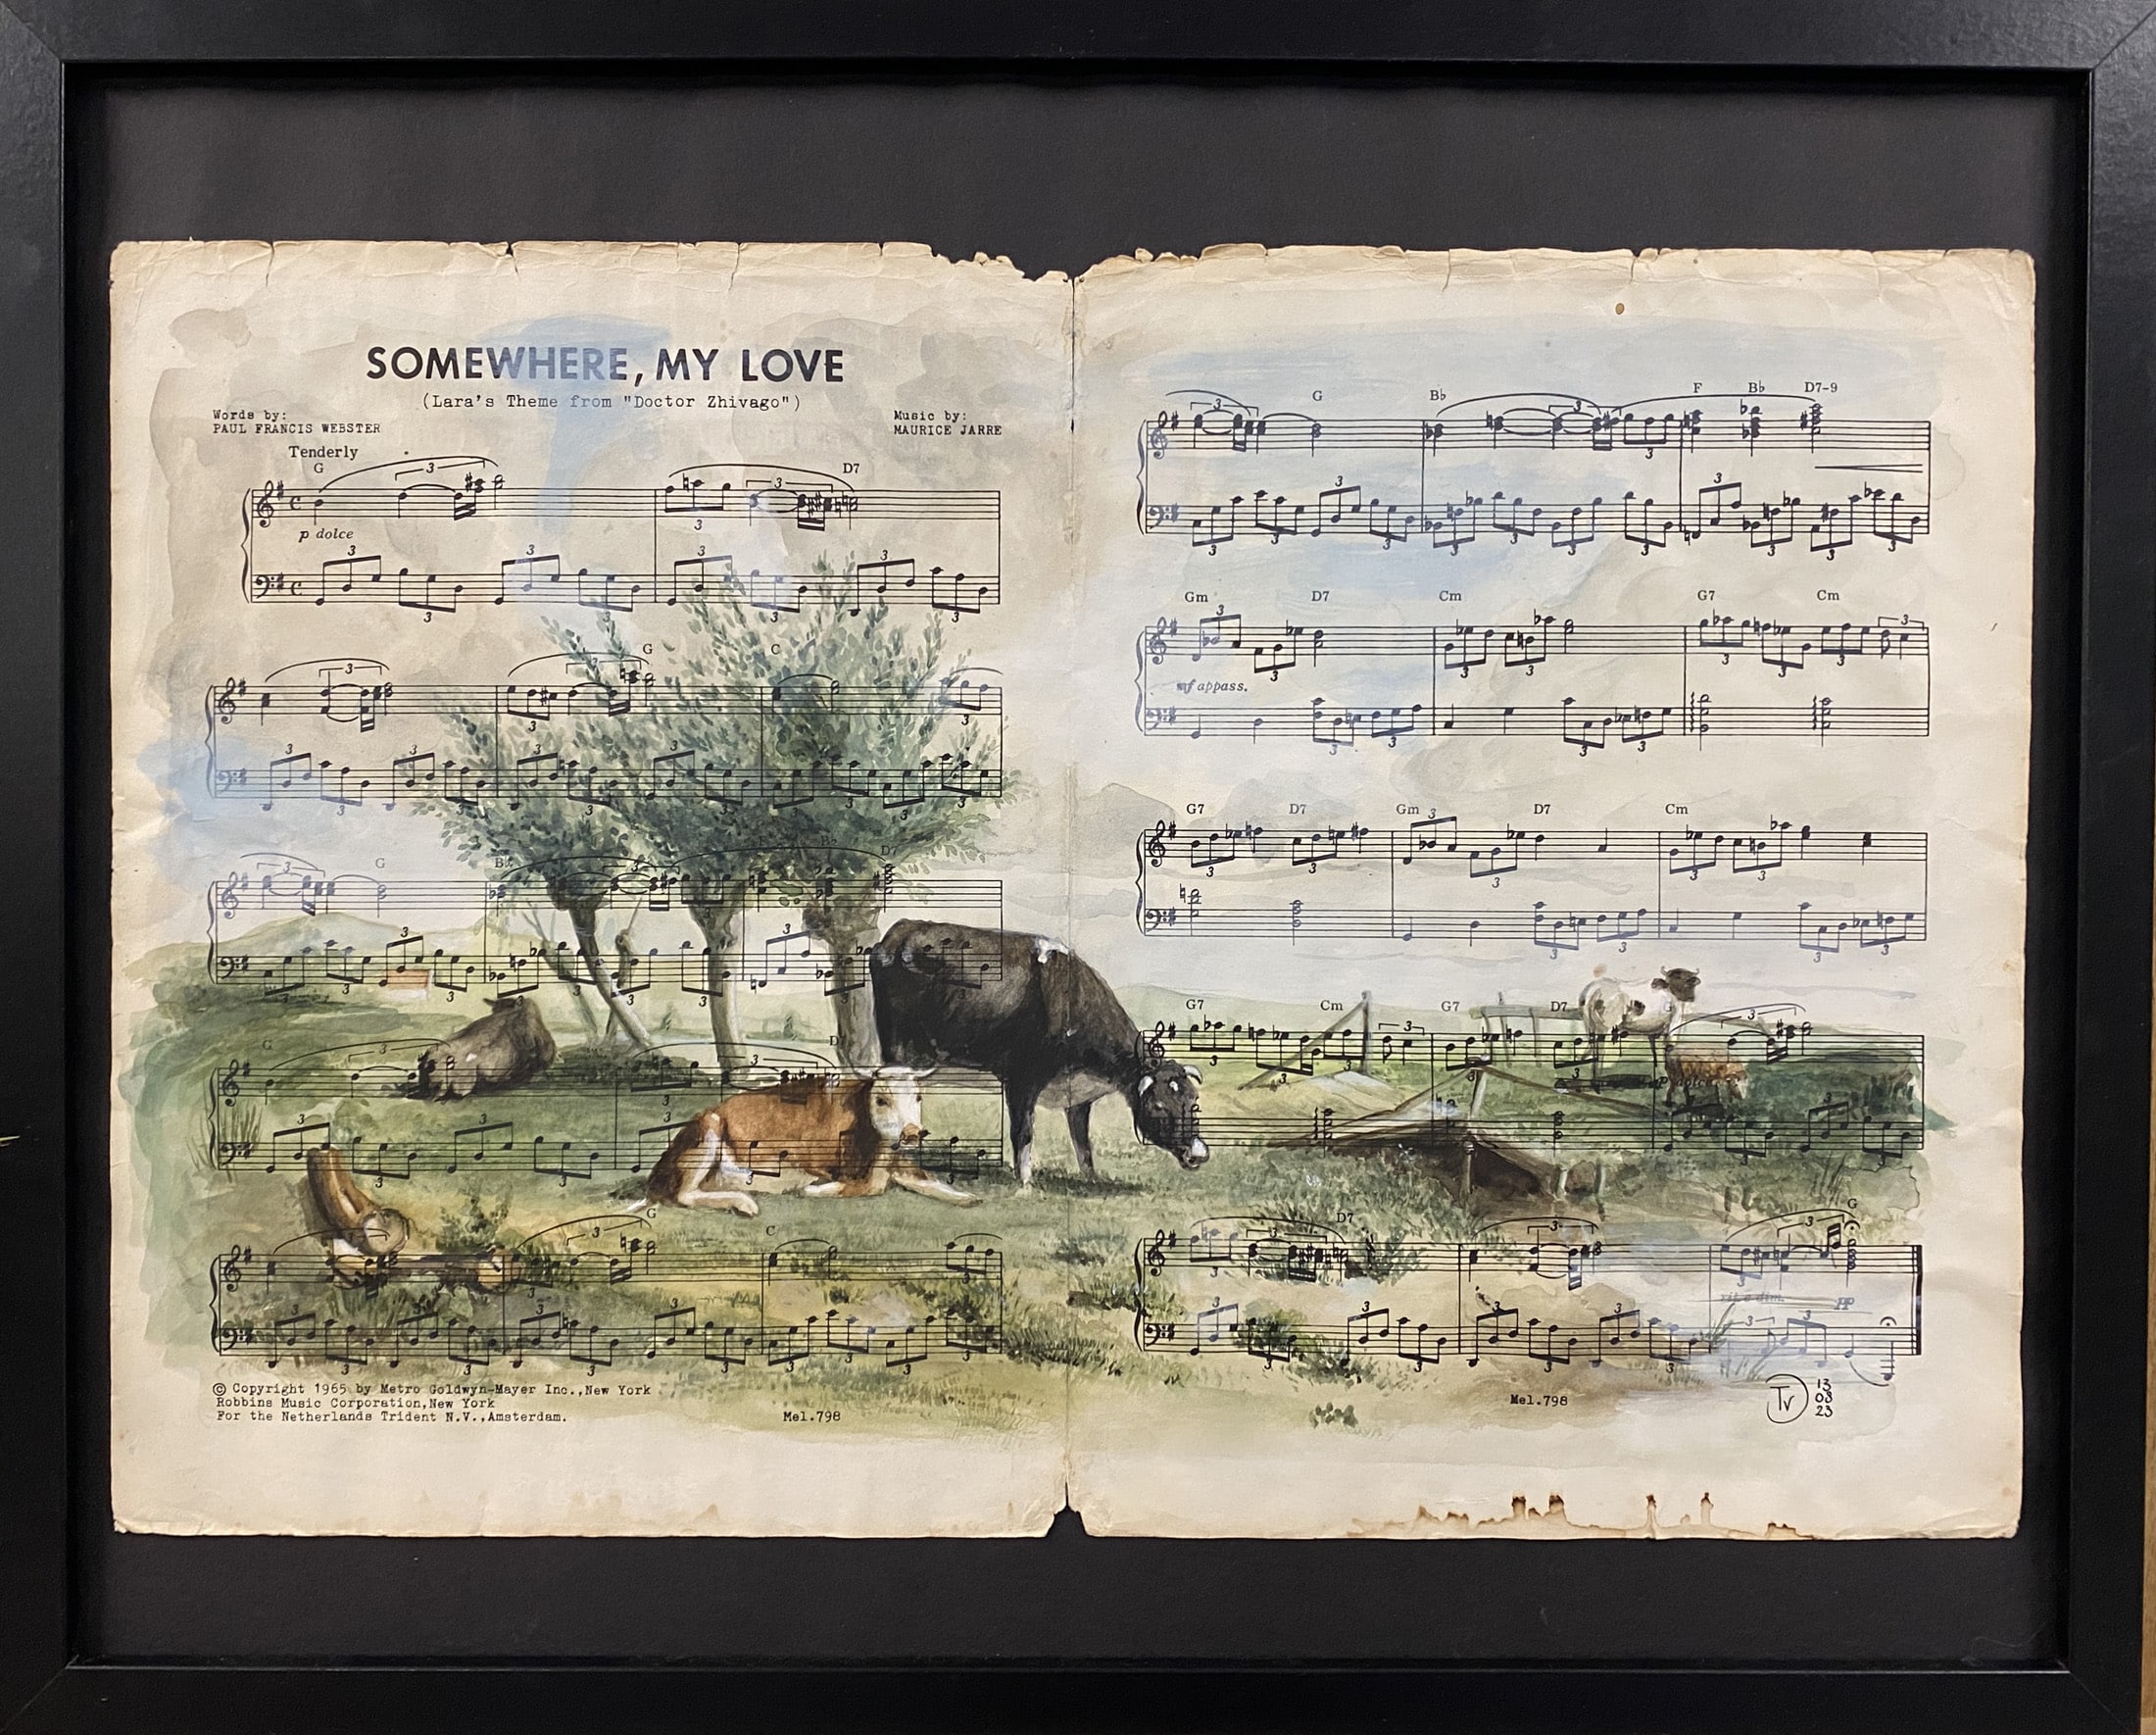 SOMEWHERE, MY LOVE
(Lara's Theme from "Doctor Zhivago")
Words by:
PAUL FRANCIS WEBSTER
Music by:
MAURICE JARRE
Tenderly
G D7
p dolce
G C
G Bb Bb D7
G D7
G C
© Copyright 1965 by Metro Goldwyn-Mayer Inc.,New York
Robbins Music Corporation,New York
For the Netherlands Trident N.V.,Amsterdam.
Mel.798
G Bb F Bb D7-9
Gm D7 Cm G7 Cm
mf appass.
G7 D7 Gm D7 Cm
G7 Cm G7 D7 G
p dolce
D7 G
rit e dim. pp
Mel.798
Tv
13
03
23